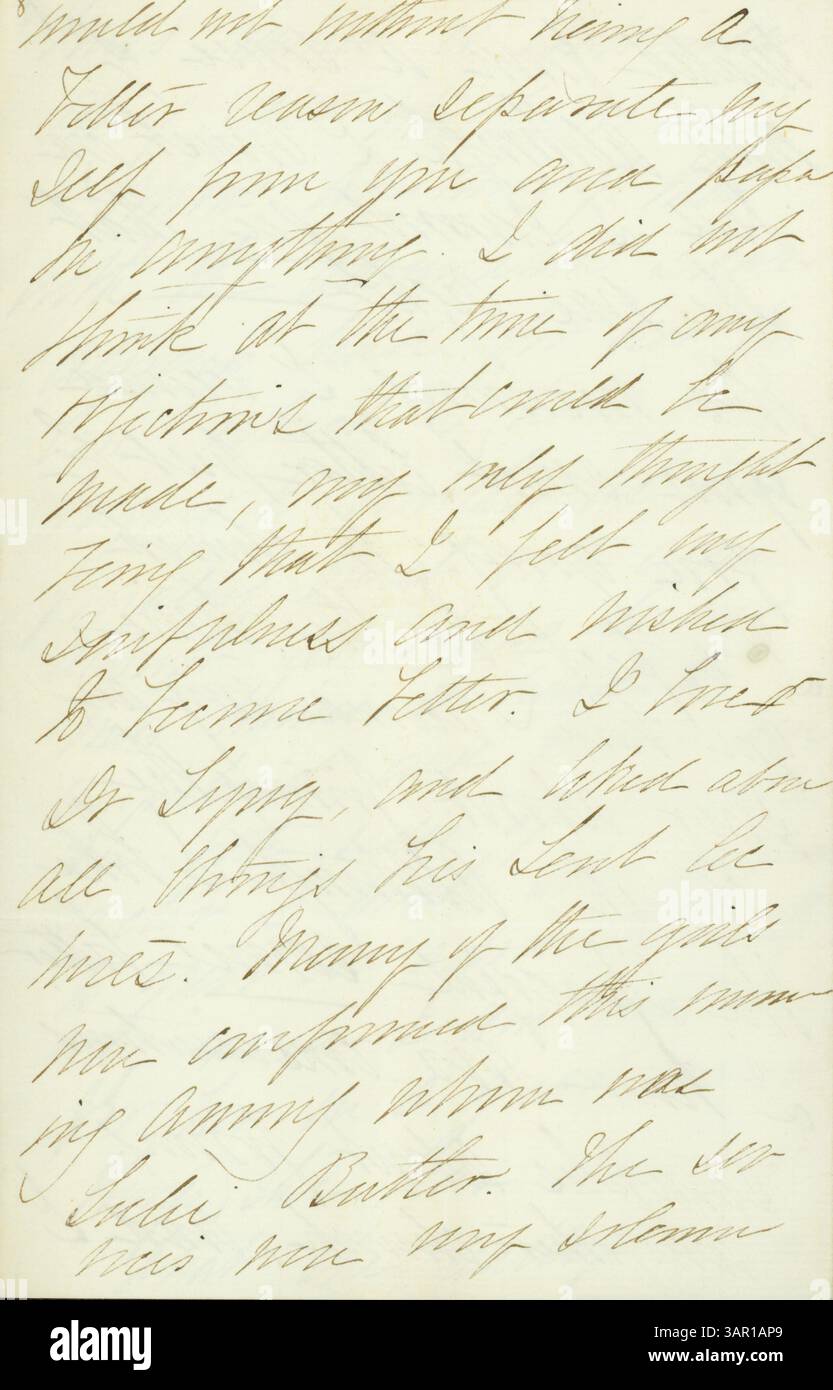 8
would not without having a
better reason separate my
self from you and papa
in anything. I did not
think at the time of any
objections that could be
made, my only thought
being that I felt my
sinfulness and wished
to become better. I love
Dr and liked above
all things his Lent lec
tures. Many of the girls
were confirmed this morn
ing among whom was
Butler. The ser
vices were very solemn
alamy
Image ID: 3AR1AP9
www.alamy.com